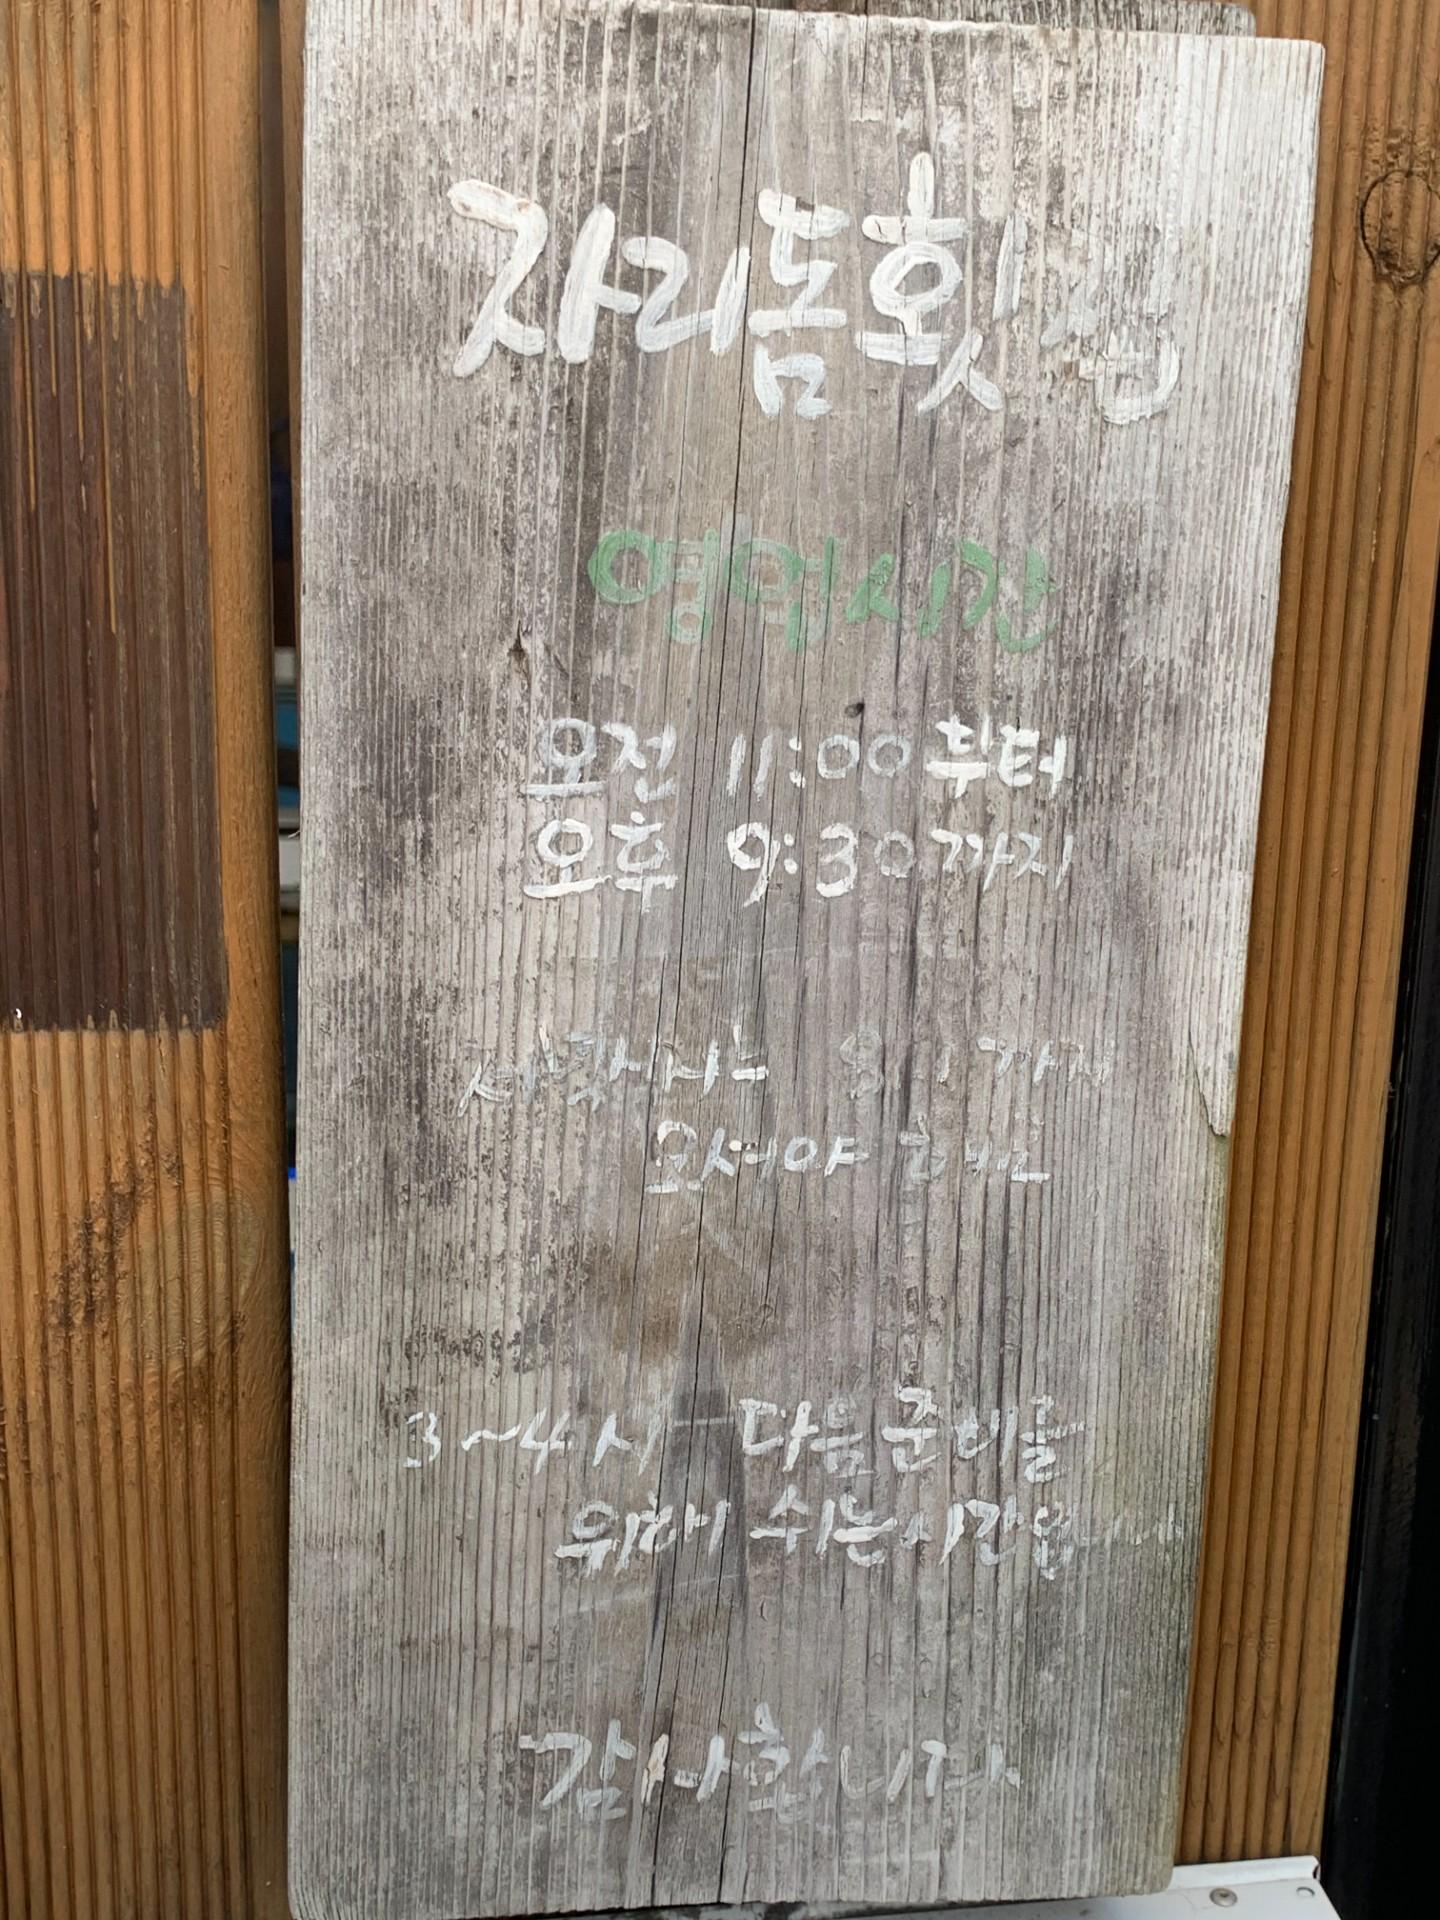 자리돔횟집
영업시간
오전 11:00부터
오후 9:30까지
까지
오셔야 해요
3~4시 다음준비를
위해 쉬는시간입니다
감사합니다